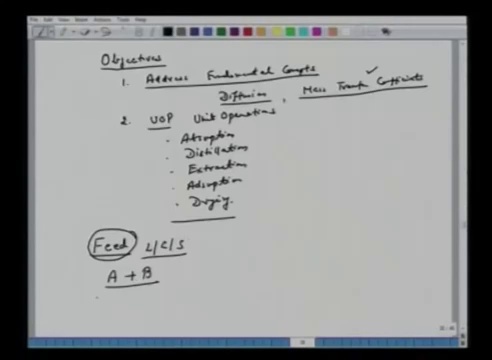 Objectives
1. Address Fundamental Concepts
Diffusion, Mass Transfer Coefficients
2. UOP Unit Operations
· Absorption
· Distillation
· Extraction
· Adsorption
· Drying.
Feed L/G/S
A + B